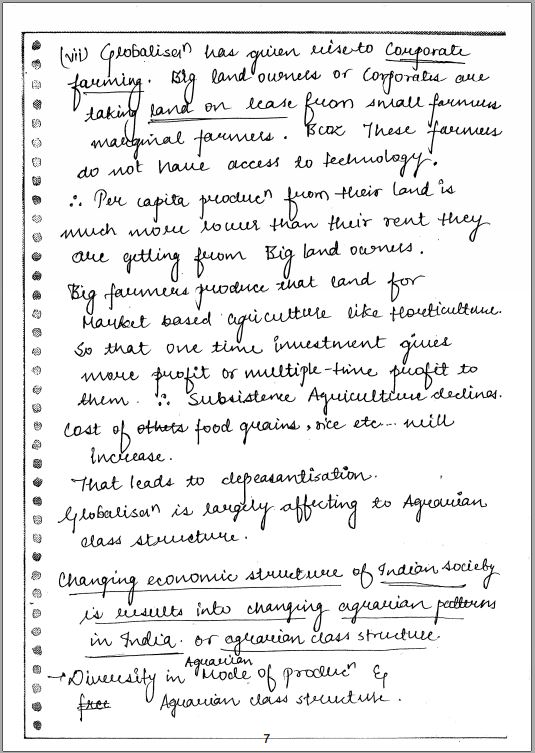 (vii) Globalisen has given rise to Corporate
farming. Big land owners or Corporates are
taking land on lease from small farmers
marginal farmers. Bcoz These farmers
do not have access to technology.
∴ Per capita producn from their land is
much more lower than their rent they
are getting from Big land owners.
Big farmers produce that land for
Market based agriculture like Horticulture.
So that one time investment gives
more profit or multiple-time profit to
them. ∴ Subsistence Agriculture declines.
Cost of others food grains, rice etc... will
Increase.
That leads to depeasantisation.
Globalisen is largely affecting to Agrarian
class structure.
Changing economic structure of Indian society
is results into changing agrarian patterns
in India. or agrarian class structure.
Agrarian
→ Diversity in Mode of producn &
free Agrarian class structure.
7